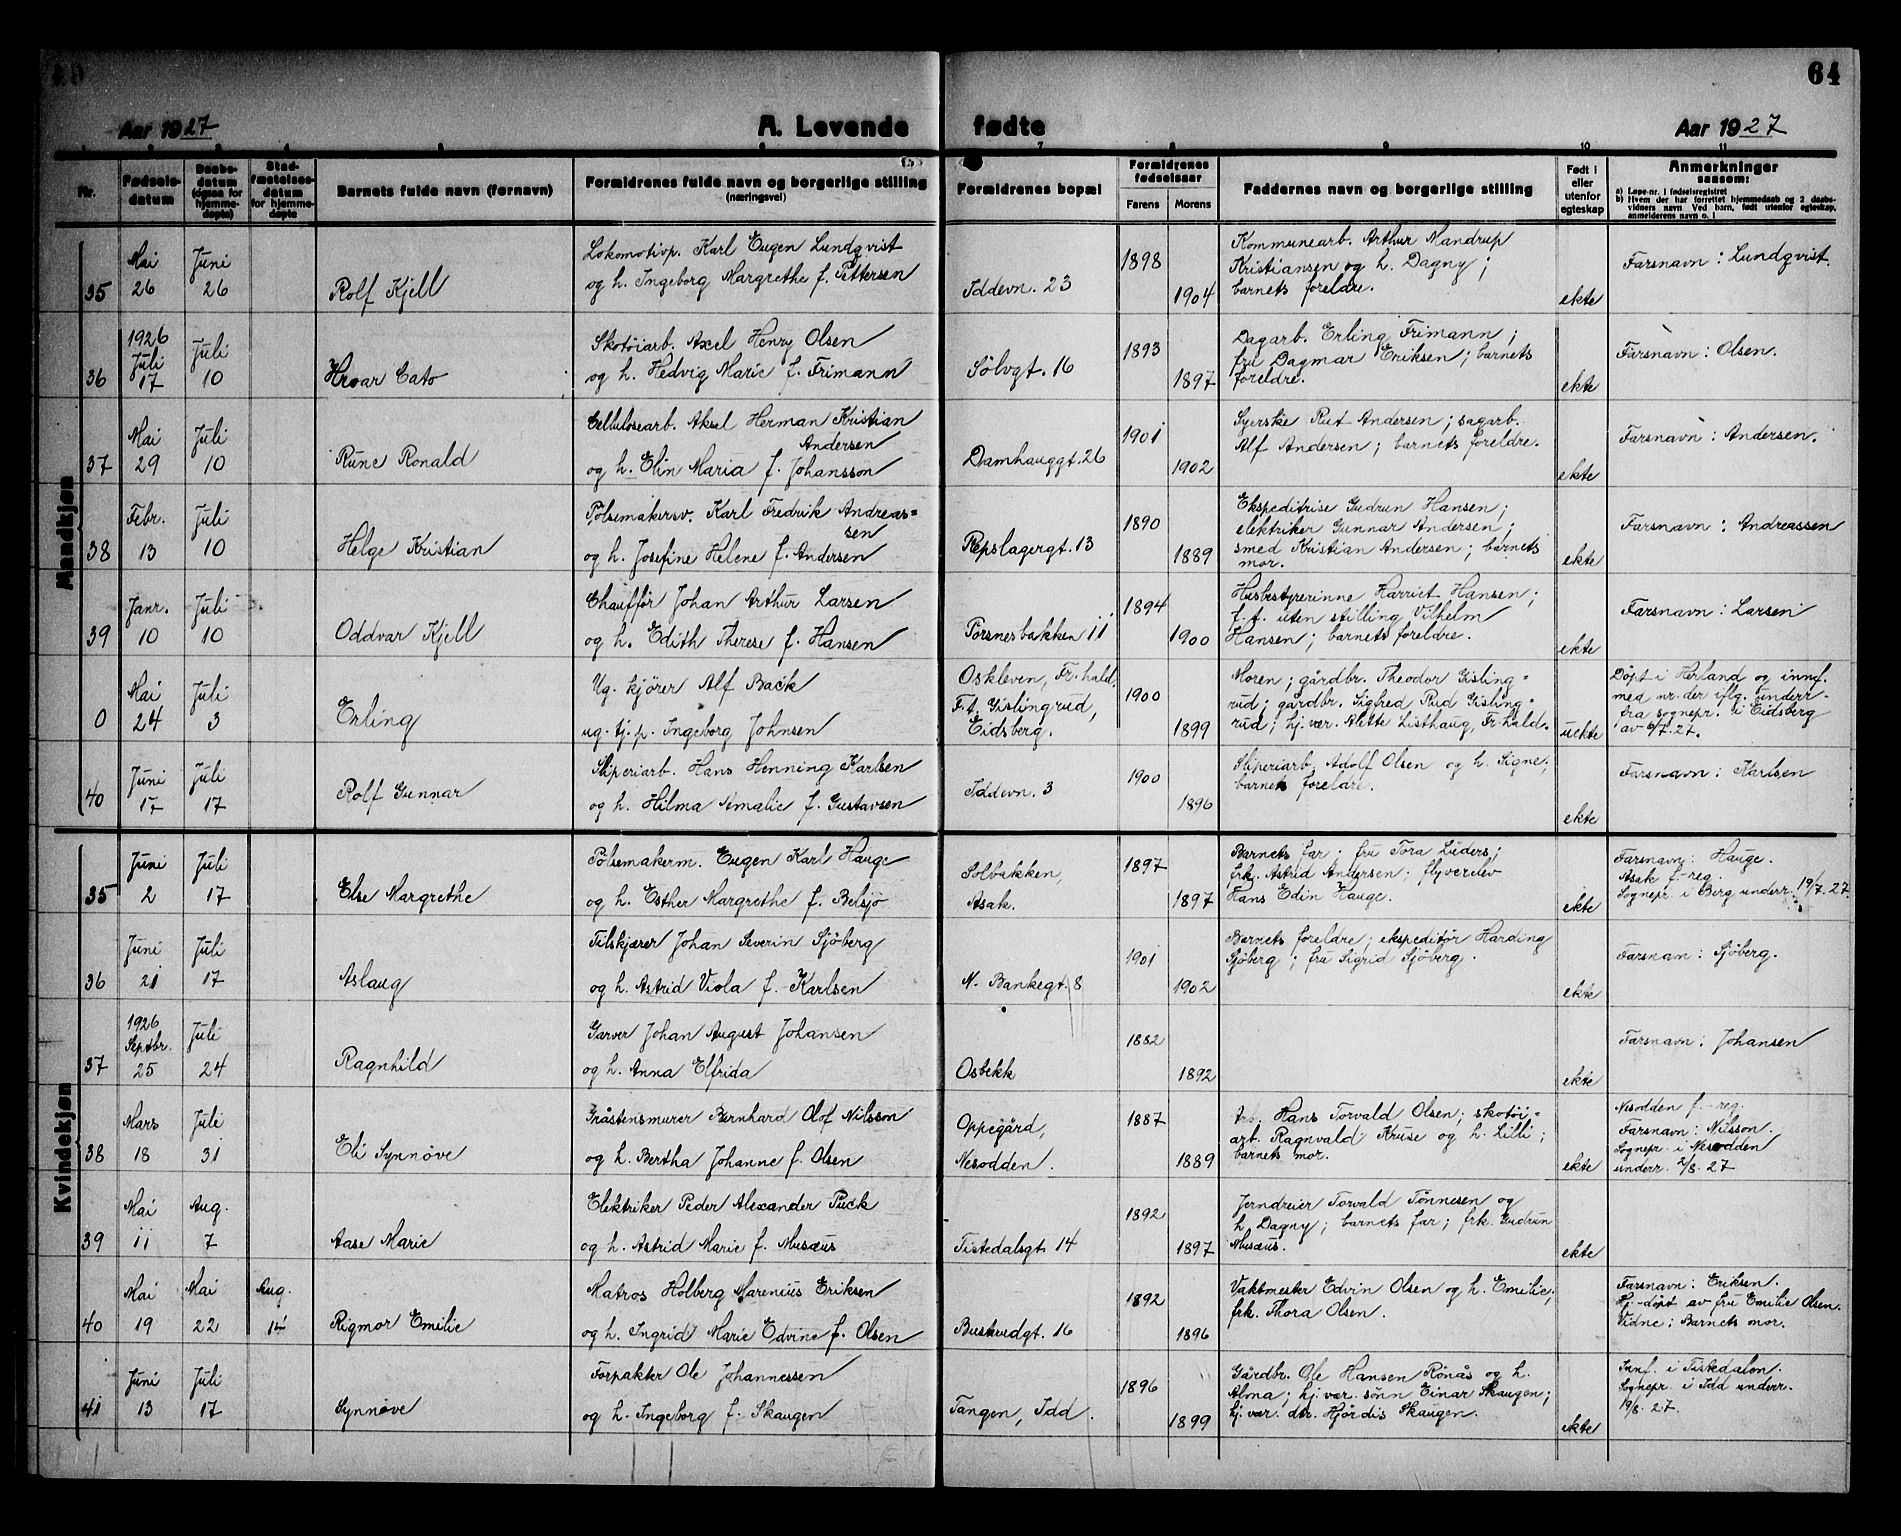 64
Aar 1927 A. Levende fødte Aar 1927
7 8 9 10 11
Nr.
Fødsels-
datum
Daabs-
datum
(ogsaa for
hjemme-
døpte)
Stad-
fæstelses-
datum
for hjemme-
døpte
Barnets fulde navn (fornavn)
Formldrenes fulde navn og borgerlige stilling
(næringsvei)
Formldrenes bopæl
Formldrenes
fødselsaar
Farens Morens
Faddernes navn og borgerlige stilling
Født i
eller
utenfor
egteskap
Anmerkninger
saasom:
a) Løpe-nr. i fødselsregistret
b) Hvem der har forrettet hjemmedaab og 2 daabs-
vidners navn Ved barn, født utenfor egteskap,
anmelderens navn o. l
Mandkjøn
35
Mai
26
Juni
26
Rolf Kjell
Lokomotivp. Karl Eugen Lundqvist
og h. Ingeborg Margrethe f. Pettersen
Iddevn. 23
1898
1904
Kommunearb. Arthur Mandrup
Kristiansen og h. Dagny;
barnets foreldre.
ekte
Farsnavn: Lundqvist.
36
1926
Juli
17
Juli
10
Hroar Cato
Skotøiarb. Axel Henry Olsen
og h. Hedvig Marie f. Frimann
Sølvgt. 16
1893
1897
Dagarb. Erling Frimann;
fru Dagmar Eriksen; barnets
foreldre.
ekte
Farsnavn: Olsen.
37
Mai
29
Juli
10
Rune Ronald
Cellulosearb. Aksel Herman Kristian
Andersen
og h. Elin Maria f. Johansson
Damhauggt. 26
1901
1902
Syerske Rut Andersen; sagarb.
Alf Andersen; barnets foreldre.
ekte
Farsnavn: Andersen.
38
Febr.
13
Juli
10
Helge Kristian
Pølsemakersv. Karl Fredrik Andreas=
sen
og h. Josefine Helene f. Andersen
Repslagergt. 13
1890
1889
Ekspeditrise Gudrun Hansen;
elektriker Gunnar Andersen;
smed Kristian Andersen; barnets
mor.
ekte
Farsnavn: Andreassen
39
Janr.
10
Juli
10
Oddvar Kjell
Chauffør Johan Arthur Larsen
og h. Edith Therese f. Hansen
Porsnesbakken 11
1894
1900
Husbestyrerinne Harriet Hansen;
f.t. uten stilling Vilhelm
Hansen; barnets foreldre.
ekte
Farsnavn: Larsen
0
Mai
24
Juli
3
Erling
Ug. kjører Alf Back
ug. tj. p. Ingeborg Johnsen
Oskleven, Fr.hald.
F.t. Gislingrud,
Eidsberg.
1900
1899
Moren; gårdbr. Theodor Gisling=
rud; gårdbr. Sigfred Rud Gisling=
rud; hj.vær. Alette Listhaug, Fr.hald.
uekte
Døpt i Herland og innf.
med nr. der iflg. underr.
fra sognepr. i Eidsberg
av 6/7. 27.
40
Juni
17
Juli
17
Rolf Gunnar
Sliperiarb. Hans Henning Karlsen
og h. Hilma Amalie f. Gustavsen
Iddevn. 3
1900
1896
Sliperiarb. Adolf Olsen og h. Signe;
barnets foreldre.
ekte
Farsnavn: Karlsen
Kvindekjøn
35
Juni
2
Juli
17
Else Margrethe
Pølsemakerm. Eugen Karl Hauge
og h. Esther Margrethe f. Belsjø
Solbakken,
Asak.
1897
1897
Barnets far; fru Tora Lüders;
frk. Astrid Andersen; flyverelev
Hans Edin Hauge.
ekte
Farsnavn: Hauge.
Asak f.-reg.
Sognepr. i Berg underr. 19/7. 27.
36
Juni
21
Juli
17
Aslaug
Tilskjærer Johan Severin Sjöberg
og h. Astrid Viola f. Karlsen
N. Bankegt. 8
1901
1902
Barnets foreldre; ekspeditør Harding
Sjöberg; fru Sigrid Sjöberg.
ekte
Farsnam: Sjöberg.
37
1926
Septbr.
25
Juli
24
Ragnhild
Garver Johan August Johansen
og h. Anna Elfrida
Osbekk
1882
1892
ekte
Farsnavn: Johansen
38
Mars
18
Juli
31
Eli Synnøve
Gråstensmurer Bernhard Olof Nilsson
og h. Bertha Johanne f. Olsen
Oppegård,
Nesodden.
1887
1889
Arb. Hans Torvald Olsen; skotøi=
arb. Ragnvald Kruse og h. Lilli;
barnets mor.
ekte
Nesodden f.-reg.
Farsnavn: Nilsson.
Sognepr. i Nesodden
underr. 2/8. 27
39
Mai
11
Aug.
7
Aase Marie
Elektriker Peder Alexander Puck
og h. Astrid Marie f. Musæus
Tistedalsgt. 14
1892
1897
Jerndreier Torvald Tønnesen og
h. Dagny; barnets far; frk. Gudrun
Musæus.
ekte
40
Mai
19
Mai
22
Aug.
14
Rigmor Emilie
Matros Holberg Marenius Eriksen
og h. Ingrid Marie Edvine f. Olsen
Buskrudgt. 16
1892
1896
Vaktmester Edvin Olsen og h. Emilie;
frk. Thora Olsen.
Farsnavn: Eriksen.
Hj.-døpt av fru Emilie Olsen.
Vidne: Barnets mor.
41
Juni
13
Juli
17
Synnøve
Forpakter Ole Johannessen
og h. Ingeborg f. Skaugen
Tangen, Idd.
1896
1899
Gårdbr. Ole Hansen Rønås og h.
Alma; hj.vær. sønn Einar Skaugen;
hj.vær. dtr. Hjørdis Skaugen.
ekte
Innf. i Tistedalen.
Sognepr. i Idd underr.
19/8. 27.